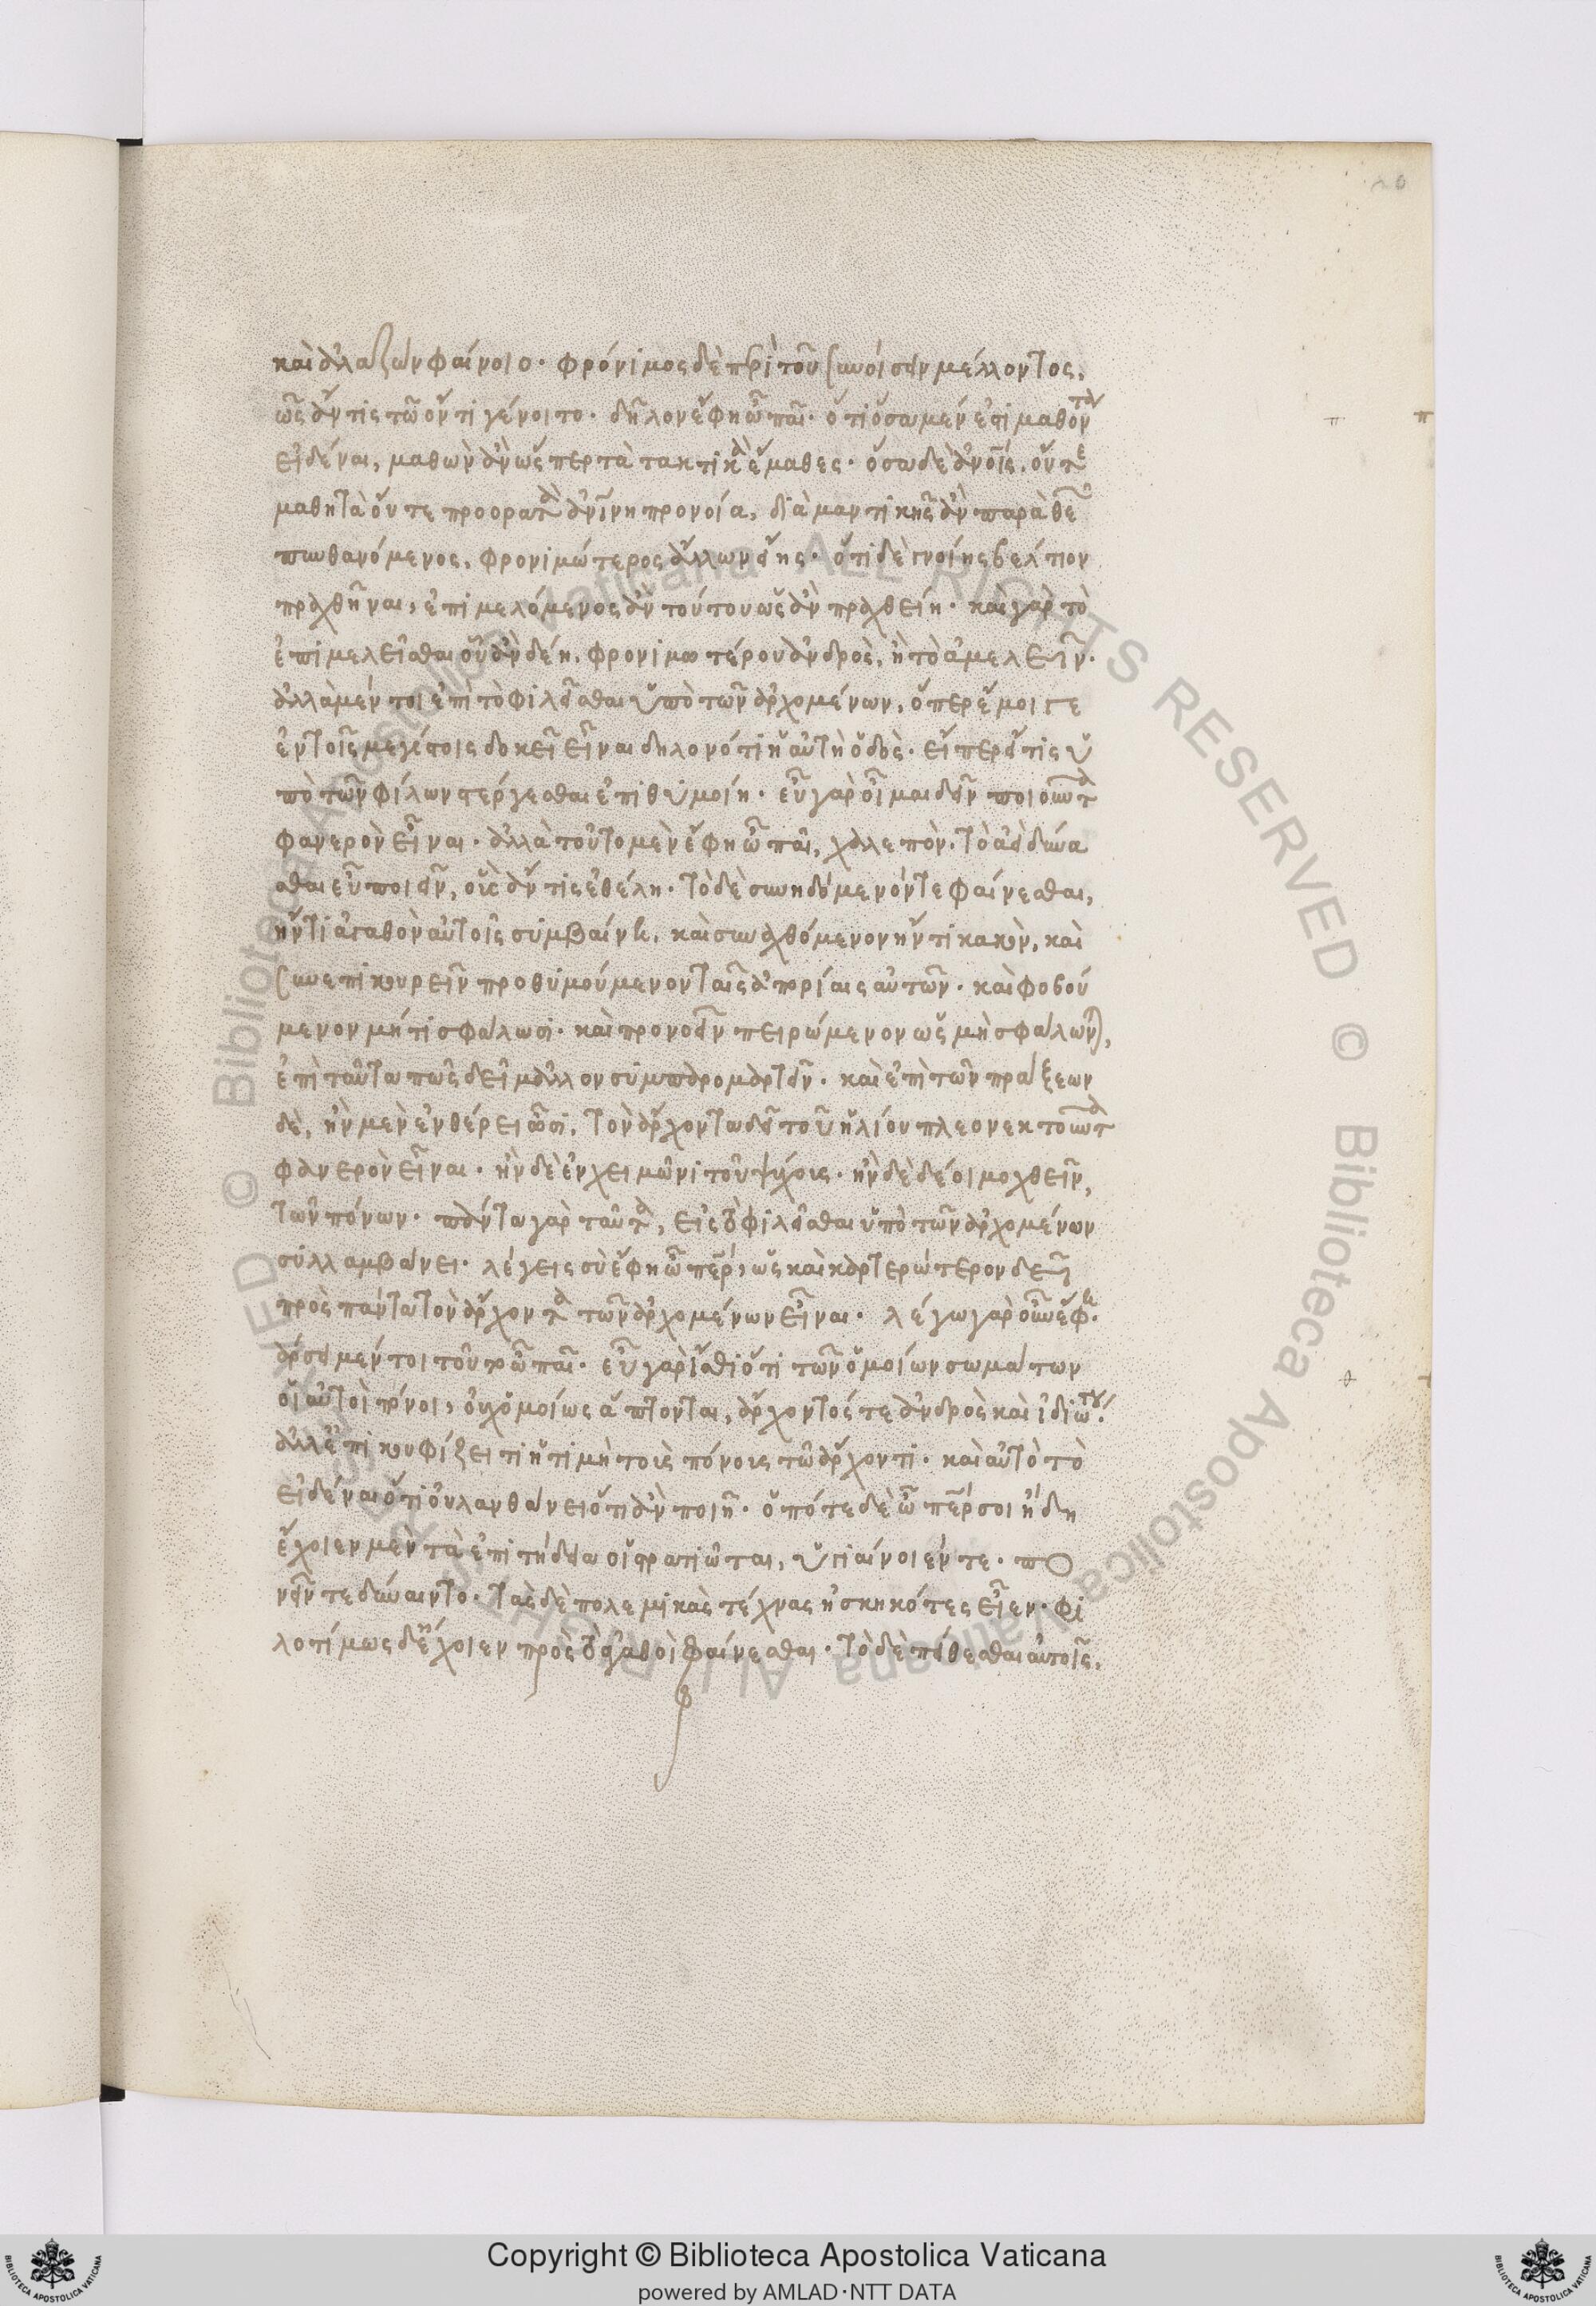 καὶ ἀλαζὼν φαίνοιο. φρόνιμος δὲ περὶ τοῦ συνοίσειν μέλλοντος,
πῶς ἄν τις τῷ ὄντι γένοιτο. δῆλον ἔφη ὦ παῖ. ὅτι ὅσα μέν ἐστι μαθόντα
εἰδέναι, μαθὼν ἂν ὥσπερ τὰ τακτικὰ ἔμαθες. ὅσα δὲ ἀνοις, οὔτε
μαθητὰ οὔτε προορατὰ ἀνίνη προνοία, διὰ μαντικῆς ἂν παρὰ θεῶν
πυνθανόμενος, φρονιμώτερος ἄλλων εἴης. ὅτι δὲ γνοίης βέλτιον
πραχθῆναι, ἐπιμελόμενος ἂν τούτου ὡς ἂν πραχθείη. καὶ γὰρ τὸ
ἐπιμελεῖσθαι οὗ ἂν δέη, φρονιμωτέρου ἀνδρὸς, ἢ τὸ ἀμελεῖν.
ἀλλὰ μέντοι ἐπὶ τὸ φιλεῖσθαι ὑπὸ τῶν ἀρχομένων, ὅπερ ἔμοιγε
ἐν τοῖς μεγίστοις δοκεῖ εἶναι δηλονότι ἡ αὐτὴ ὁδὸς. εἴπερ εἴ τις ὑ
πὸ τῶν φίλων στέργεσθαι ἐπιθυμοίη. εὖ γὰρ οἶμαι δεῖν ποιοῦντα
φανερὸν εἶναι. ἀλλὰ τοῦτο μὲν ἔφη ὦ παῖ, χαλεπὸν. τὸ ἀεὶ δύνα
σθαι εὖ ποιεῖν, οὓς ἄν τις ἐθέλη. τὸ δὲ συνηδόμενόν τε φαίνεσθαι,
ἤν τι ἀγαθὸν αὐτοῖς συμβαίνη, καὶ συναχθόμενον ἤν τι κακὸν, καὶ
συνεπικουρεῖν προθυμούμενον ταῖς ἀπορίαις αὐτῶν. καὶ φοβού
μενον μή τι σφάλωσι. καὶ προνοεῖν πειρώμενον ὡς μὴ σφάλωνται,
ἐπὶ ταῦτα πως δεῖ μᾶλλον συμπαρομαρτεῖν. καὶ ἐπὶ τῶν πράξεων
δὲ, ἢν μὲν ἐν θέρει ὦσι, τὸν ἄρχοντα δεῖ τοῦ ἡλίου πλεονεκτοῦντα
φανερὸν εἶναι. ἢν δὲ ἐν χειμῶνι τοῦ ψύχους. ἢν δὲ δέοι μοχθεῖν,
τῶν πόνων. πάντα γὰρ ταῦτα, εἰς τὸ φιλεῖσθαι ὑπὸ τῶν ἀρχομένων
συλλαμβάνει. λέγεις σὺ ἔφη ὦ πάτερ, ὡς καὶ καρτερώτερον δεῖ
πρὸς πάντα τὸν ἄρχοντα τῶν ἀρχομένων εἶναι. λέγω γὰρ οὖν ἔφη.
θάρσει μέντοι τοῦτο ὦ παῖ. εὖ γὰρ ἴσθι ὅτι τῶν ὁμοίων σωμάτων
οἱ αὐτοὶ πόνοι, οὐχ ὁμοίως ἅπτονται, ἄρχοντός τε ἀνδρὸς καὶ ἰδιώτου.
ἀλλ' ἐπικουφίζει τι ἡ τιμὴ τοὺς πόνους τῷ ἄρχοντι. καὶ αὐτὸ τὸ
εἰδέναι ὅτι οὐ λανθάνει ὅτι ἂν ποιῇ. ὁπότε δὲ ὦ πάτερ σοι ἤδη
ἔχοιεν μὲν τὰ ἐπιτήδεια οἱ στρατιῶται, ὑγιαίνοιέν τε. πο
νεῖν τε δύναιντο. τὰς δὲ πολεμικὰς τέχνας ἠσκηκότες εἶεν. φι
λοτίμως δ' ἔχοιεν πρὸς τὸ ἀγαθοὶ φαίνεσθαι. τὸ δὲ πείθεσθαι αὐτοῖς,
Copyright © Biblioteca Apostolica Vaticana
powered by AMLAD·NTT DATA